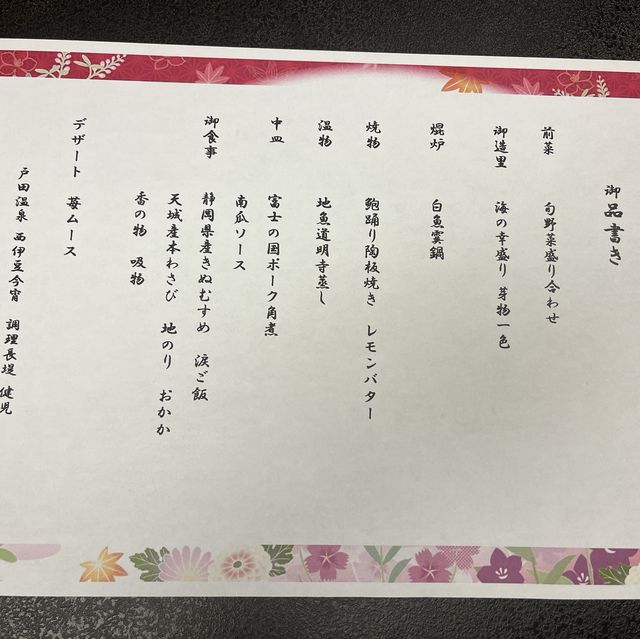 御品書き
前菜 旬野菜盛り合わせ
御造里 海の幸盛り 芽物一色
焜炉 白魚霙鍋
焼物 鮑踊り陶板焼き レモンバター
温物 地魚道明寺蒸し
中皿 富士の国ポーク角煮
南瓜ソース
御食事 静岡県産きぬむすめ 涙ご飯
天城産本わさび 地のり おかか
香の物 吸物
デザート 苺ムース
戸田温泉 西伊豆今宵 調理長堤 健児